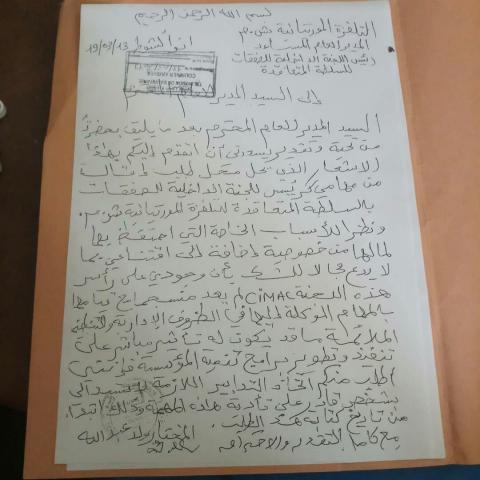 بسم الله الرحمن الرحيم
التلفزة الموريتانية ش.م
المدير العام المساعد انواكشوط 19/03/13
رئيس اللجنة الداخلية للصفقات
للسلطة المتعاقدة
COURRIER ARRIVEE
إلى السيد المدير
السيد المدير العام المحترم بعد ما يليق بحضرتكم
من تحية وتقدير يسعدني أن أتقدم إليكم بهذا
الاشعار الذي يحل محل طلب
من مهامي كرئيس للجنة الداخلية للصفقات
بالسلطة المتعاقدة للتلفزة الموريتانية ش.م.
ونظرا للأسباب الخاصة التي احتفظ بها
لما لها من خصوصية إضافة إلى اقتناعي بما
لا يدع مجالا للشك بأن وجودي على رأس
هذه اللجنة CIMAC لم يعد منسجما مع قيامها
بالمهام الموكلة إليها في الظروف الإدارية والفنية
الملائمة مما قد يكون له تأثير مباشر على
تنفيذ وتطوير برامج تنمية المؤسسة فإنني
أطلب منكم اتخاذ التدابير اللازمة
شخص قادر على تأدية هذه المهمة وذلك ابتداء
من تاريخ كتابة هذا الطلب. المختار ولد عبد الله
مع كامل التقدير والاحترام